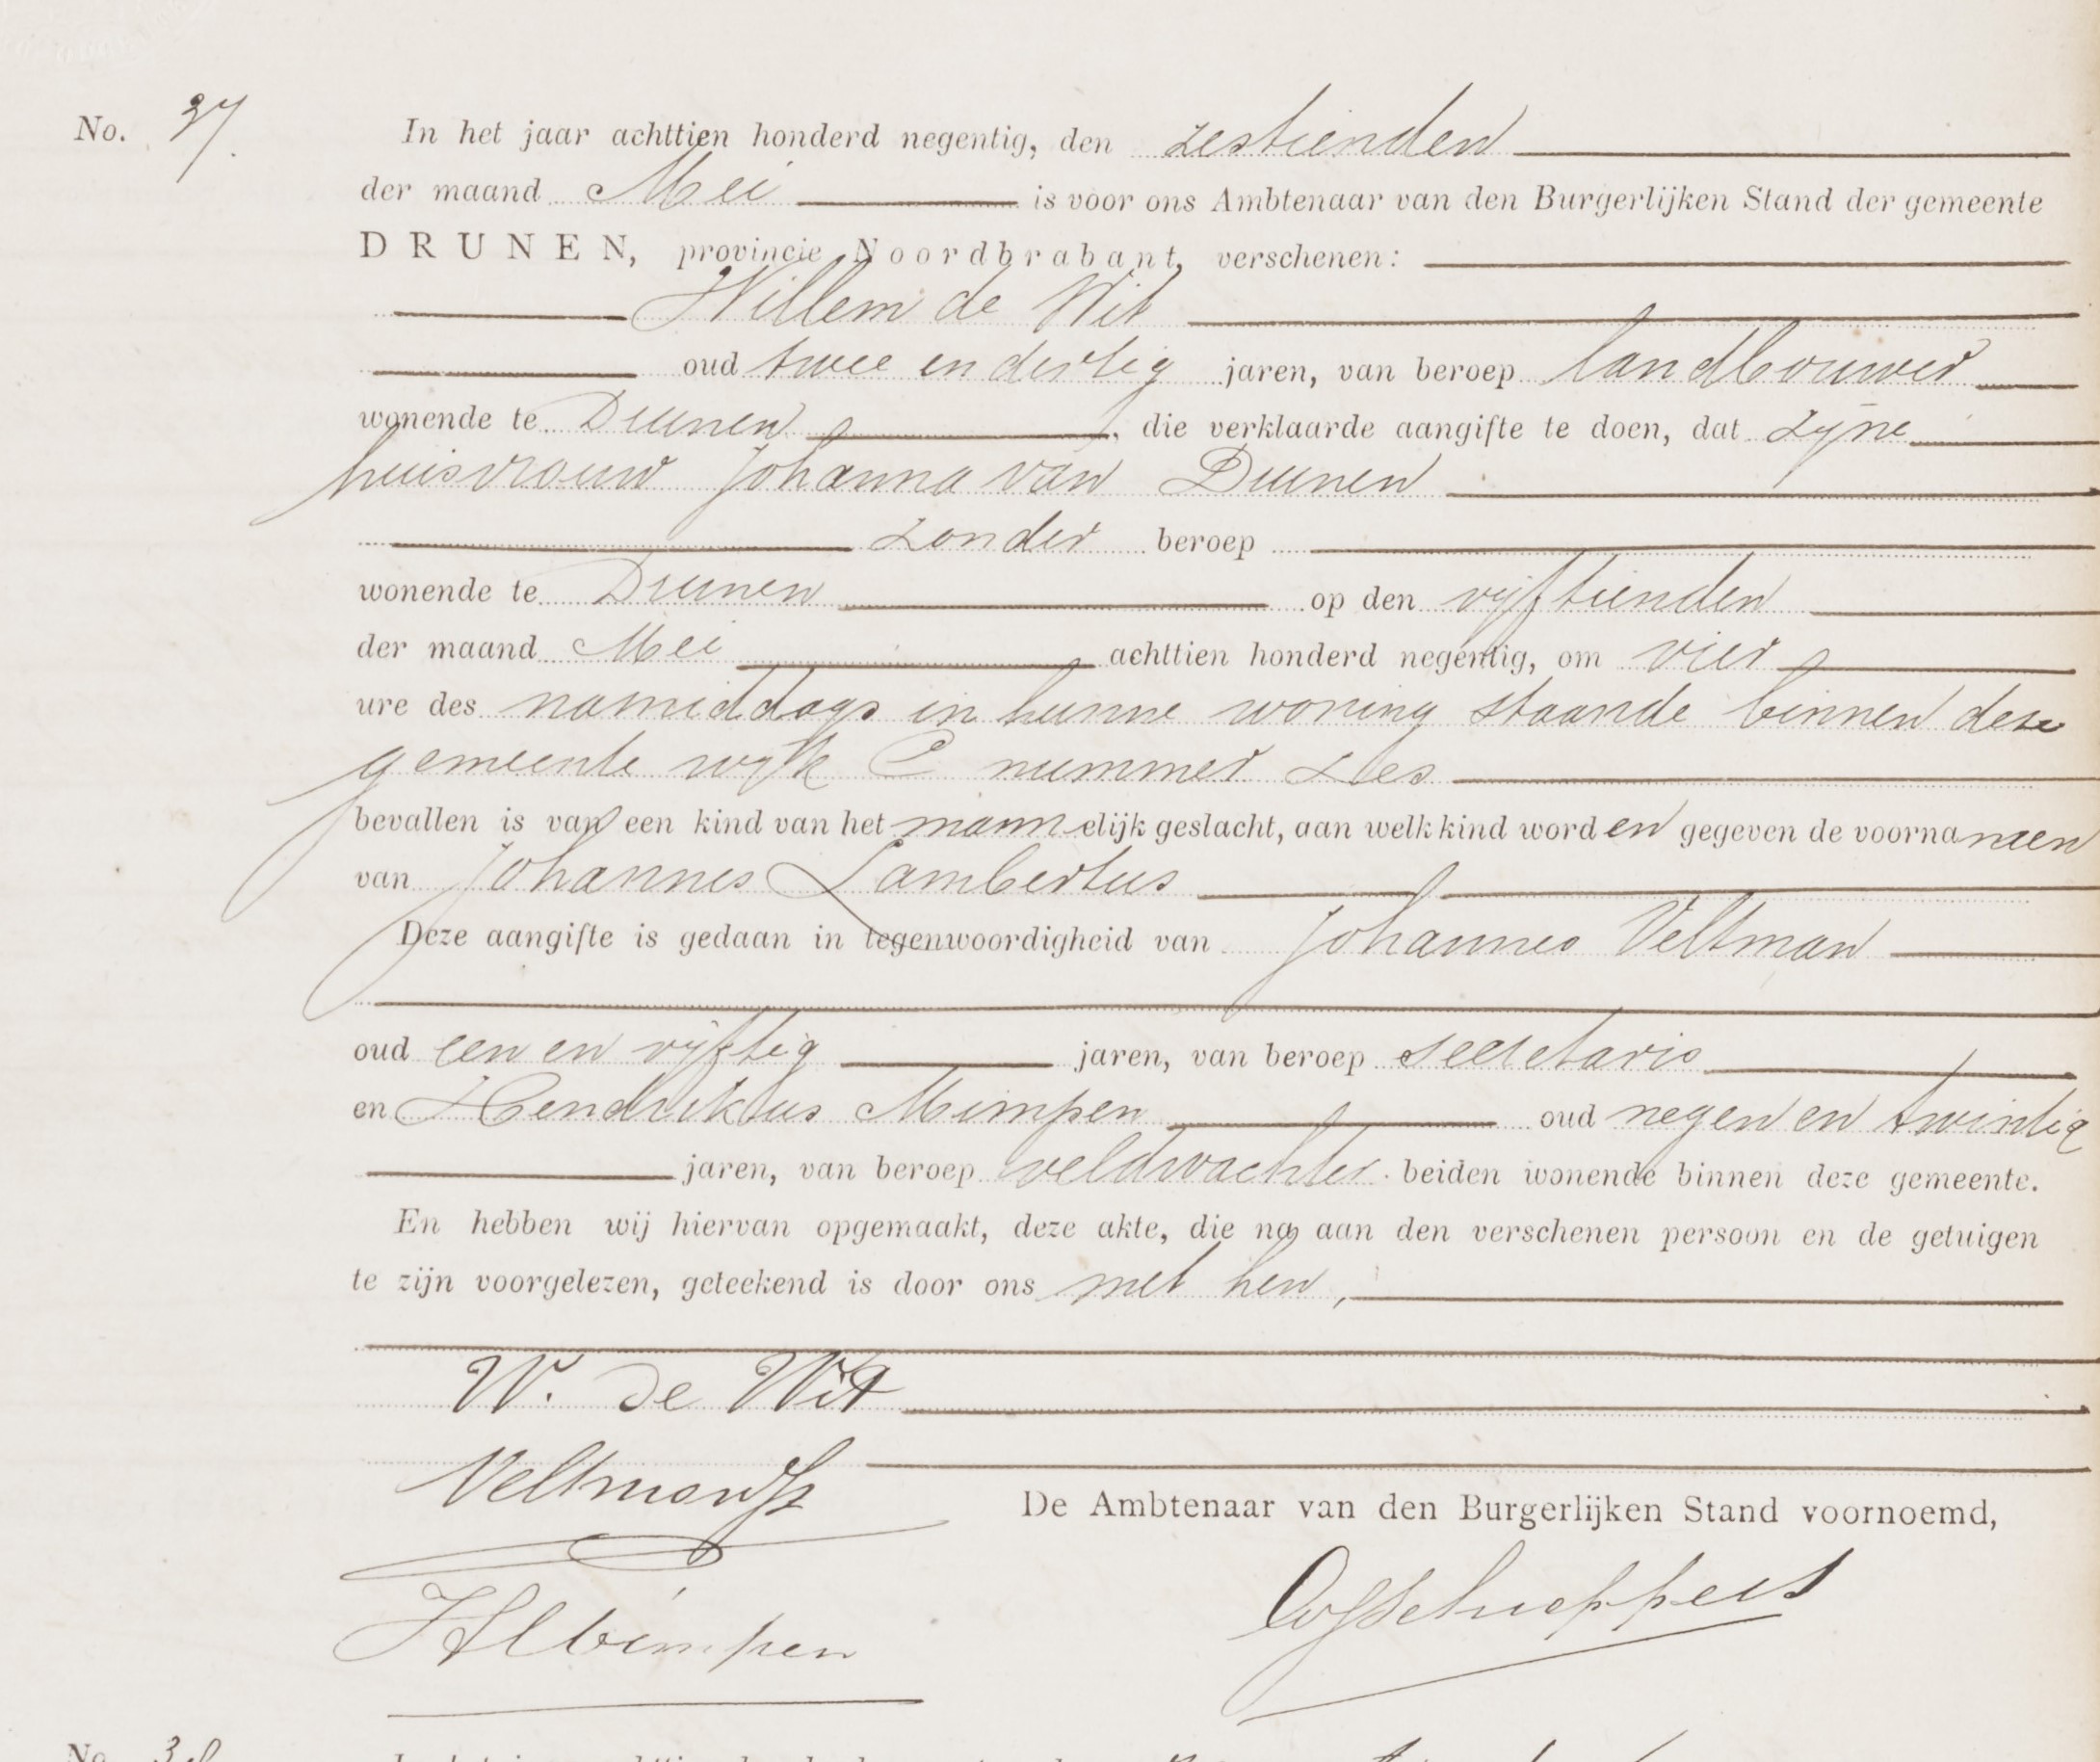 No. 37.
In het jaar achttien honderd negentig, den zestienden
der maand Mei is voor ons Ambtenaar van den Burgerlijken Stand der gemeente
DRUNEN, provincie Noordbrabant, verschenen:
Willem de Wit
oud twee en dertig jaren, van beroep landbouwer
wonende te Drunen, die verklaarde aangifte te doen, dat zijne
huisvrouw Johanna van Drunen
zonder beroep
wonende te Drunen op den vijftienden
der maand Mei achttien honderd negentig, om vier
ure des namiddags in hunne woning staande binnen deze
gemeente wijk C nummer zes
bevallen is van een kind van het mannelijk geslacht, aan welk kind worden gegeven de voornamen
van Johannes Lambertus
Deze aangifte is gedaan in tegenwoordigheid van Johannes Veltman
oud een en vijftig jaren, van beroep secretaris
en Hendrikus Mimpen oud negen en twintig
jaren, van beroep veldwachter beiden wonende binnen deze gemeente.
En hebben wij hiervan opgemaakt, deze akte, die na aan den verschenen persoon en de getuigen
te zijn voorgelezen, geteekend is door ons met hen,
W. de Wit
Veltman
De Ambtenaar van den Burgerlijken Stand voornoemd,
HMimpen
No. 38